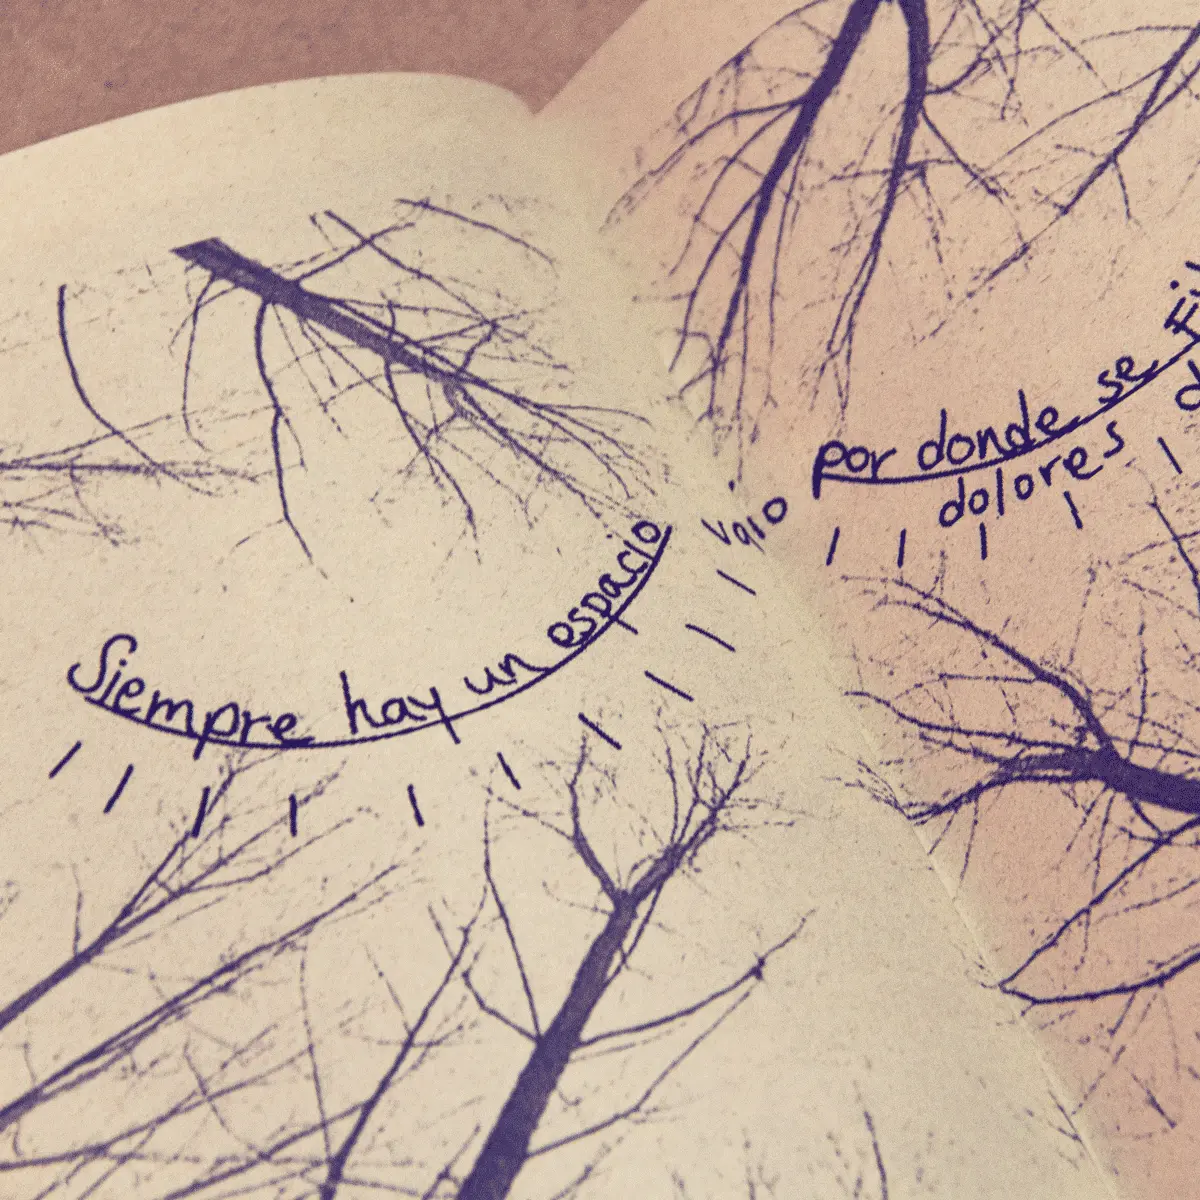 Siempre hay un espacio
vaio
por donde se Fi
dolores d